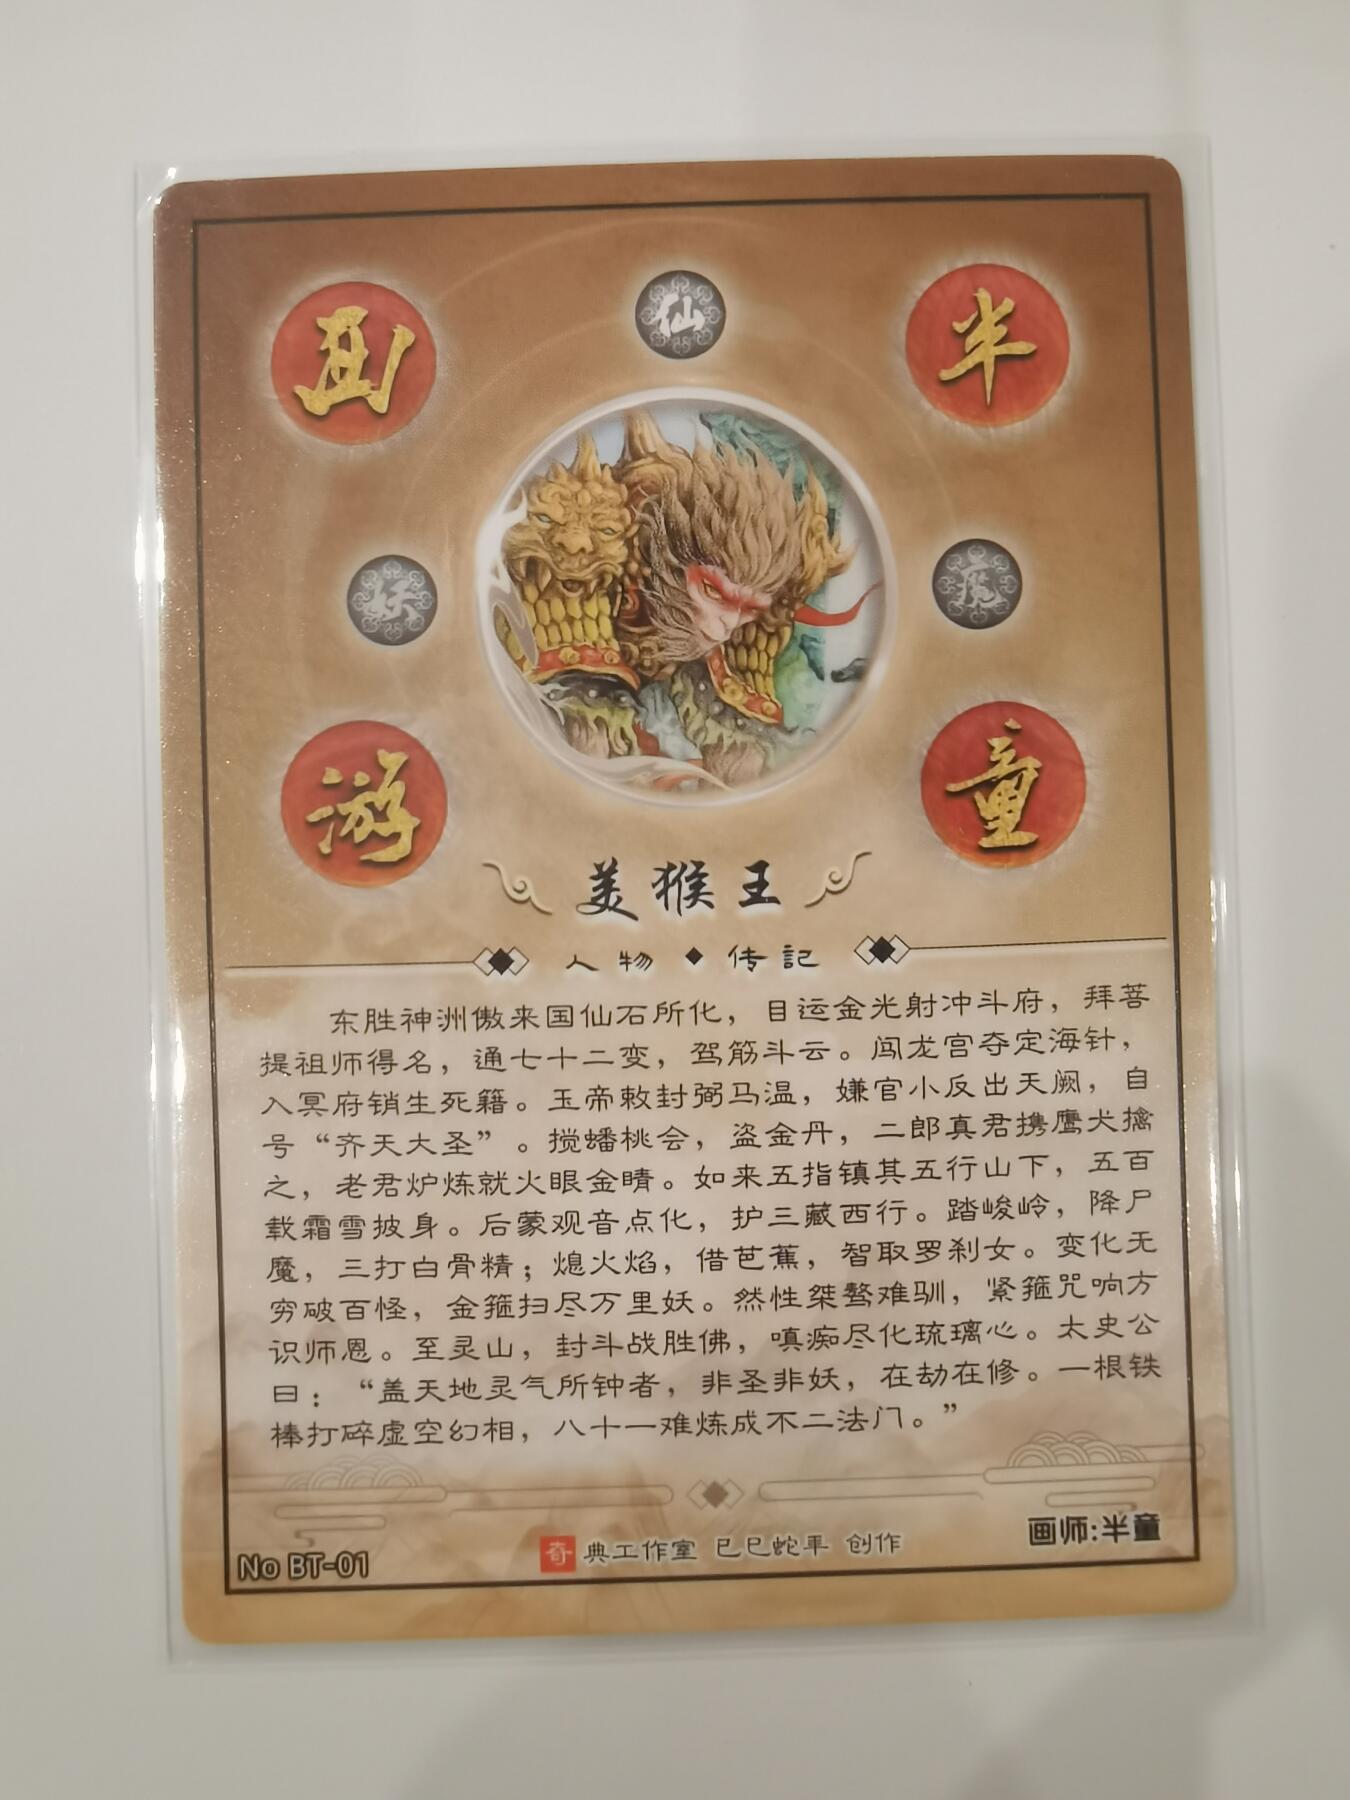 西
仙
半
妖
魔
游
童
美猴王
人物◆传記
东胜神洲傲来国仙石所化，目运金光射冲斗府，拜菩
提祖师得名，通七十二变，驾筋斗云。闯龙宫夺定海针，
入冥府销生死籍。玉帝敕封弼马温，嫌官小反出天阙，自
号“齐天大圣”。搅蟠桃会，盗金丹，二郎真君携鹰犬擒
之，老君炉炼就火眼金睛。如来五指镇其五行山下，五百
载霜雪披身。后蒙观音点化，护三藏西行。踏峻岭，降尸
魔，三打白骨精；熄火焰，借芭蕉，智取罗刹女。变化无
穷破百怪，金箍扫尽万里妖。然性桀骜难驯，紧箍咒响方
识师恩。至灵山，封斗战胜佛，嗔痴尽化琉璃心。太史公
曰：“盖天地灵气所钟者，非圣非妖，在劫在修。一根铁
棒打碎虚空幻相，八十一难炼成不二法门。”
No BT-01
奇典工作室 已巳蛇年 创作
画师:半童